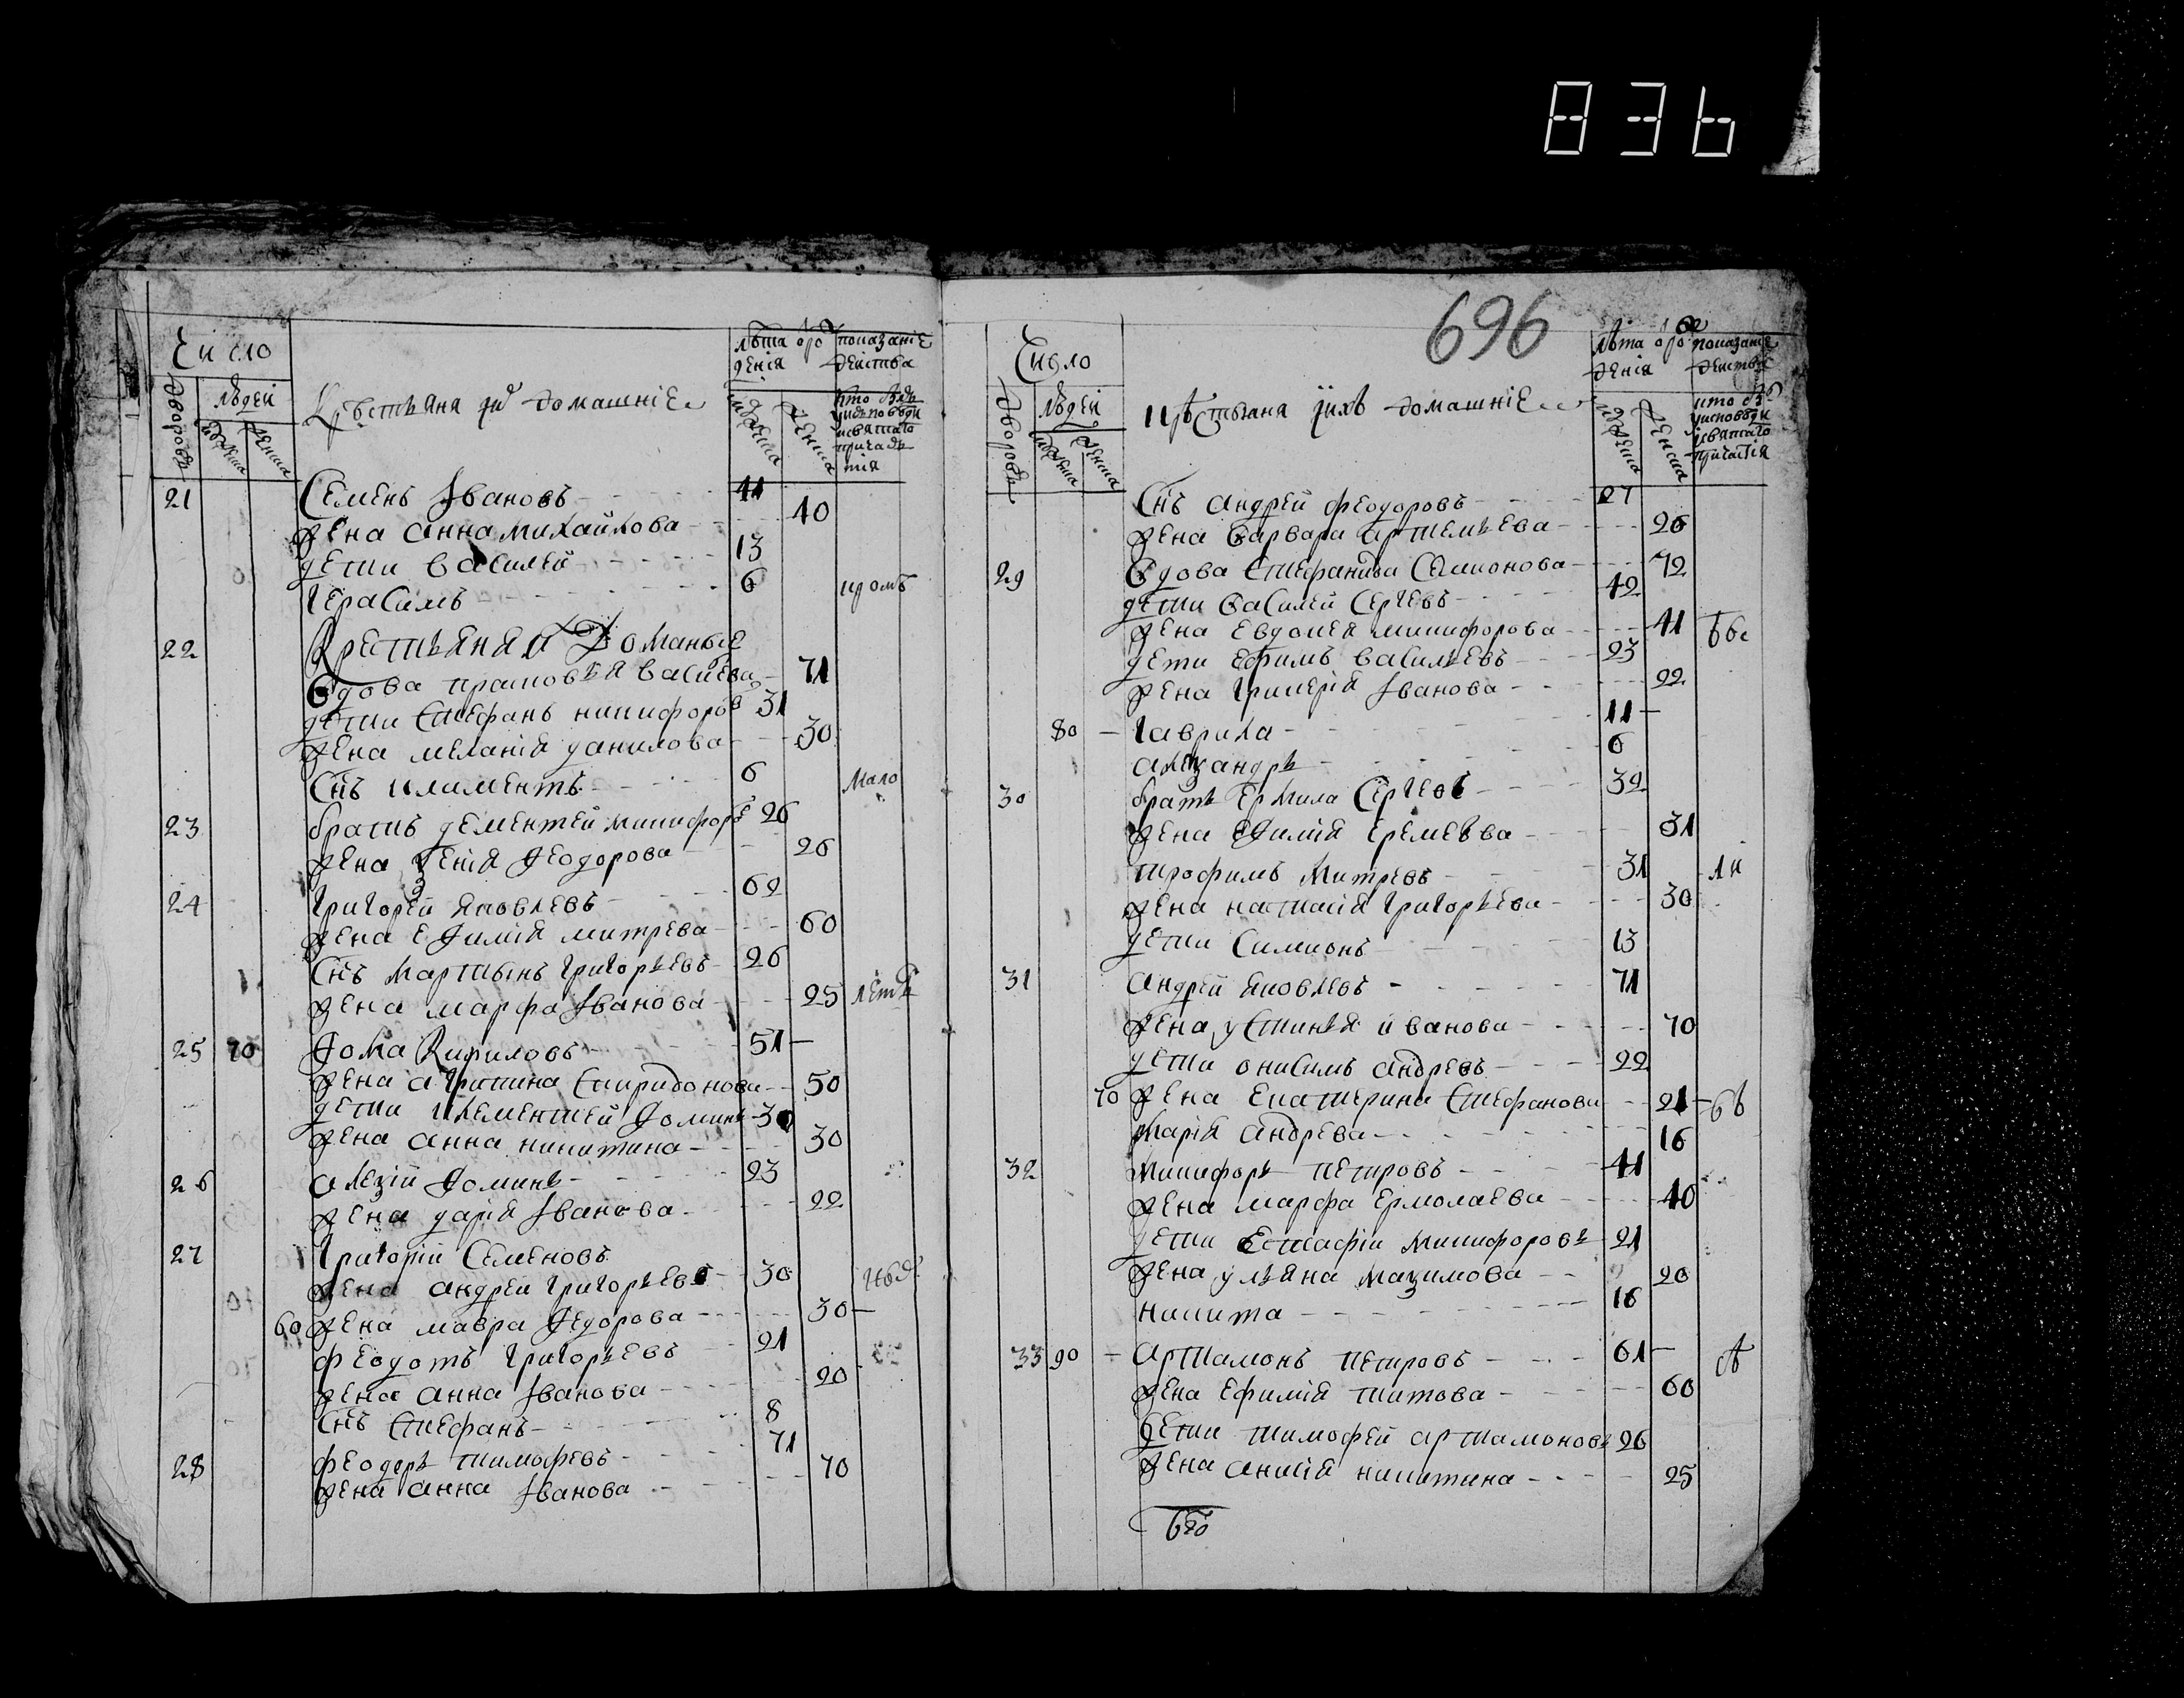 836
Число
дворовъ
людей
мужеска
женска
Крестьяня ихъ домашніе
лѣта от рождения
мужеска
женска
показаніе действа
кто былъ у исповѣди и святаго причастия
21 Семенъ Ивановъ 41
жена Анна Михайлова 40
дети Василей 13
Герасимъ 6 кромѣ
22 Крестьяня и Доманые
Вдова Прасковья Василева 71
дети Стефанъ Никифоров 31
жена Меланія Данилова 30
Снъ Климентъ 6 мало
23 братъ Дементей Никифорв 26
жена Ксенія Феодорова 26
24 Григорей Яковлевъ 62
жена Ефимія Митрева 60
Снъ Мартынъ Григорьевъ 26
жена Марфа Иванова 25 летн
25 70 Фома Кириловъ 51
жена Агрипина Спиридонова 50
дети Клементей Фоминъ 30
жена Анна Никитина 30
26 Алезій Фоминъ 23
жена Дарія Иванова 22
27 Григорій Семеновъ
жена Андрей Григорьевъ 30
60 жена Мавра Федорова 30
Феодотъ Григорьевъ 21
жена Анна Иванова 20
Снъ Стефанъ 8
28 Феодоръ Тимофевъ 71
жена Анна Иванова 70
696
Число
дворовъ
людей
мужеска
женска
Крестьяня ихъ домашніе
лѣта от рождения
мужеска
женска
показание действа
кто былъ у исповѣди и святаго причастія
Снъ Андрей Феодоровъ 27
жена Варвара Артемьева 26
29 Вдова Стефанида Симионова 72
дети Василей Сергевъ 42
жена Евдокея Никифорова 41
дети Ефимъ Васильевъ 23
жена Гликерія Иванова 22
80 Гаврила 11
Алезандръ 6
30 братъ Ермила Сергевъ 32
жена Ефимія Еремеева 31
Трофимъ Митревъ 31
жена Настасія Григорьева 30
дети Симионъ 13
31 Андрей Яковлевъ 71
жена Устинья Иванова 70
дети Онисимъ Андревъ 22
70 жена Екатерина Стефанова 21
Марія Андрева 16
32 Никифоръ Петровъ 41
жена Марфа Ермолаева 40
дети Естафіи Никифоровъ 21
жена Ульяна Мазимова 20
Никита 16
33 90 Артамонъ Петровъ 61
жена Ефимія Титова 60
дети Тимофей Артамоновъ 26
жена Анисія Никитина 25